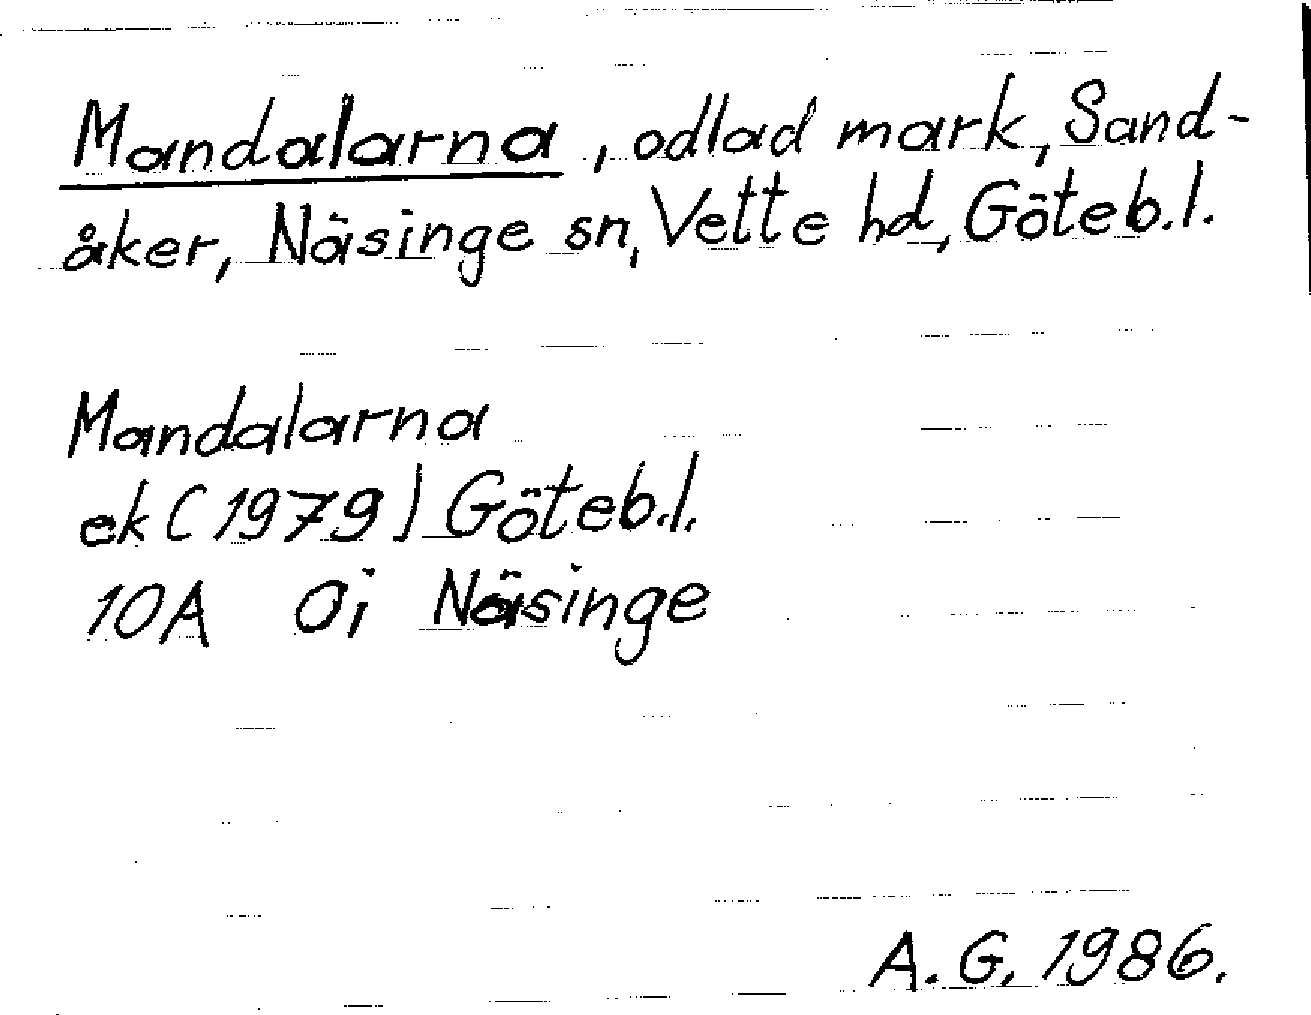 Mandalarna, odlad mark, Sand-
åker, Näsinge sn, Vette hd, Göteb.l.
Mandalarna
ek (1979) Göteb.l.
10A 0i Näsinge
A.G. 1986.